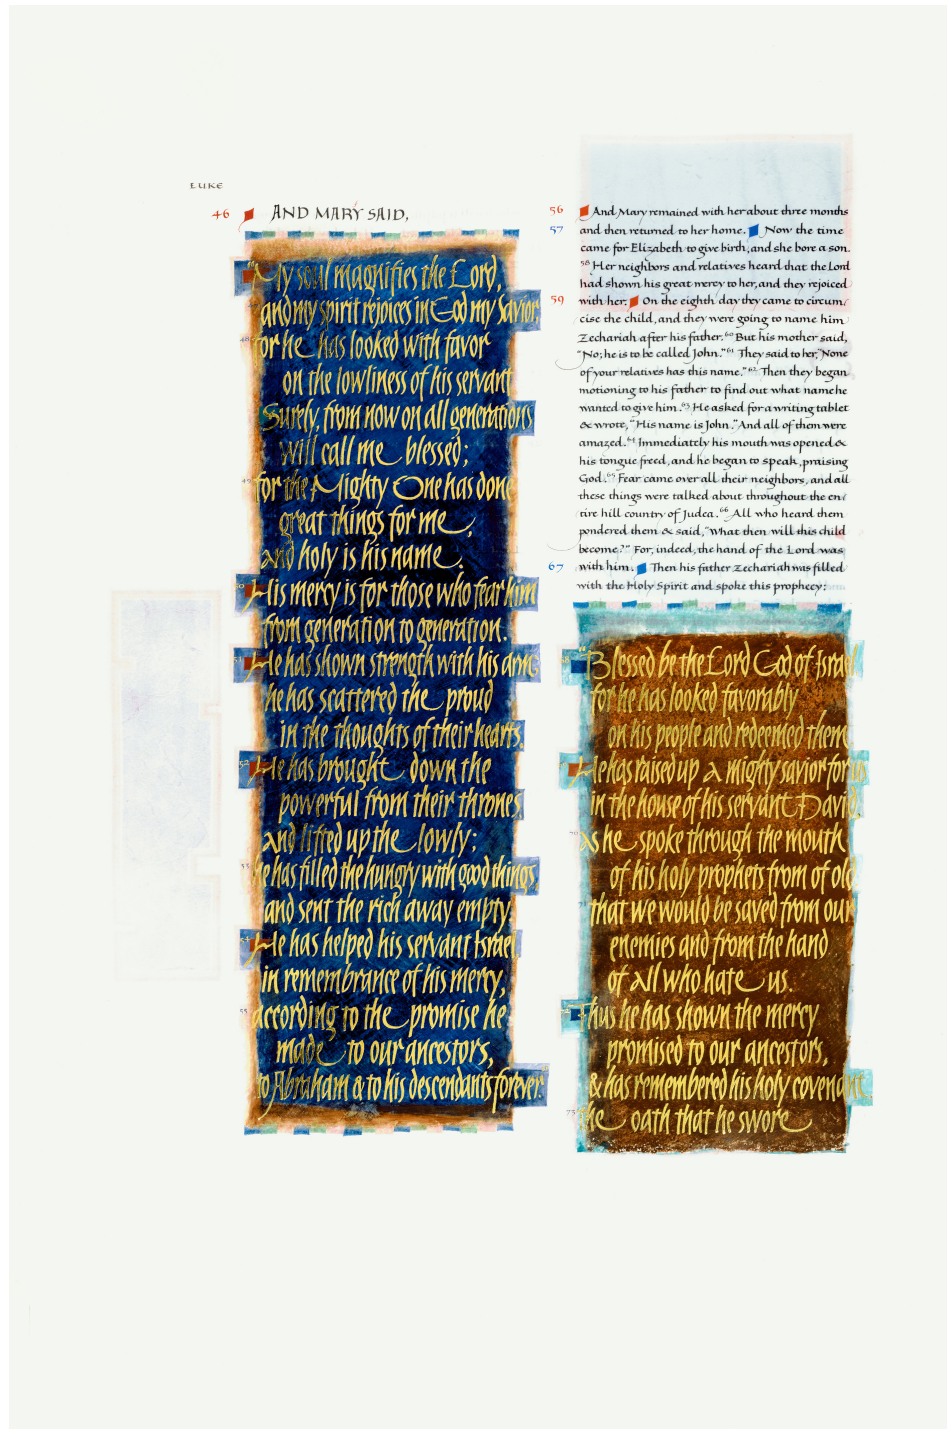 LUKE
46 AND MARY SAID,
"My soul magnifies the Lord,
and my spirit rejoices in God my Savior,
48 for he has looked with favor
on the lowliness of his servant
Surely, from now on all generations
will call me blessed;
49 for the Mighty One has done
great things for me,
and holy is his name.
50 His mercy is for those who fear him
from generation to generation.
51 He has shown strength with his arm;
he has scattered the proud
in the thoughts of their hearts.
52 He has brought down the
powerful from their thrones,
and lifted up the lowly;
53 he has filled the hungry with good things,
and sent the rich away empty.
54 He has helped his servant Israel
in remembrance of his mercy,
55 according to the promise he
made to our ancestors,
to Abraham & to his descendants forever.
56 And Mary remained with her about three months
57 and then returned to her home. Now the time
came for Elizabeth to give birth, and she bore a son.
58 Her neighbors and relatives heard that the Lord
had shown his great mercy to her, and they rejoiced
59 with her. On the eighth day they came to circum/
cise the child, and they were going to name him
Zechariah after his father. 60 But his mother said,
"No; he is to be called John." 61 They said to her, "None
of your relatives has this name." 62 Then they began
motioning to his father to find out what name he
wanted to give him. 63 He asked for a writing tablet
& wrote, "His name is John." And all of them were
amazed. 64 Immediately his mouth was opened &
his tongue freed, and he began to speak, praising
God. 65 Fear came over all their neighbors, and all
these things were talked about throughout the en/
tire hill country of Judea. 66 All who heard them
pondered them & said, "What then will this child
become?" For, indeed, the hand of the Lord was
67 with him. Then his father Zechariah was filled
with the Holy Spirit and spoke this prophecy:
68 "Blessed be the Lord God of Israel
for he has looked favorably
on his people and redeemed them
He has raised up a mighty savior for us
in the house of his servant David,
70 as he spoke through the mouth
of his holy prophets from of old
71 that we would be saved from our
enemies and from the hand
of all who hate us.
72 Thus he has shown the mercy
promised to our ancestors,
& has remembered his holy covenant
73 the oath that he swore